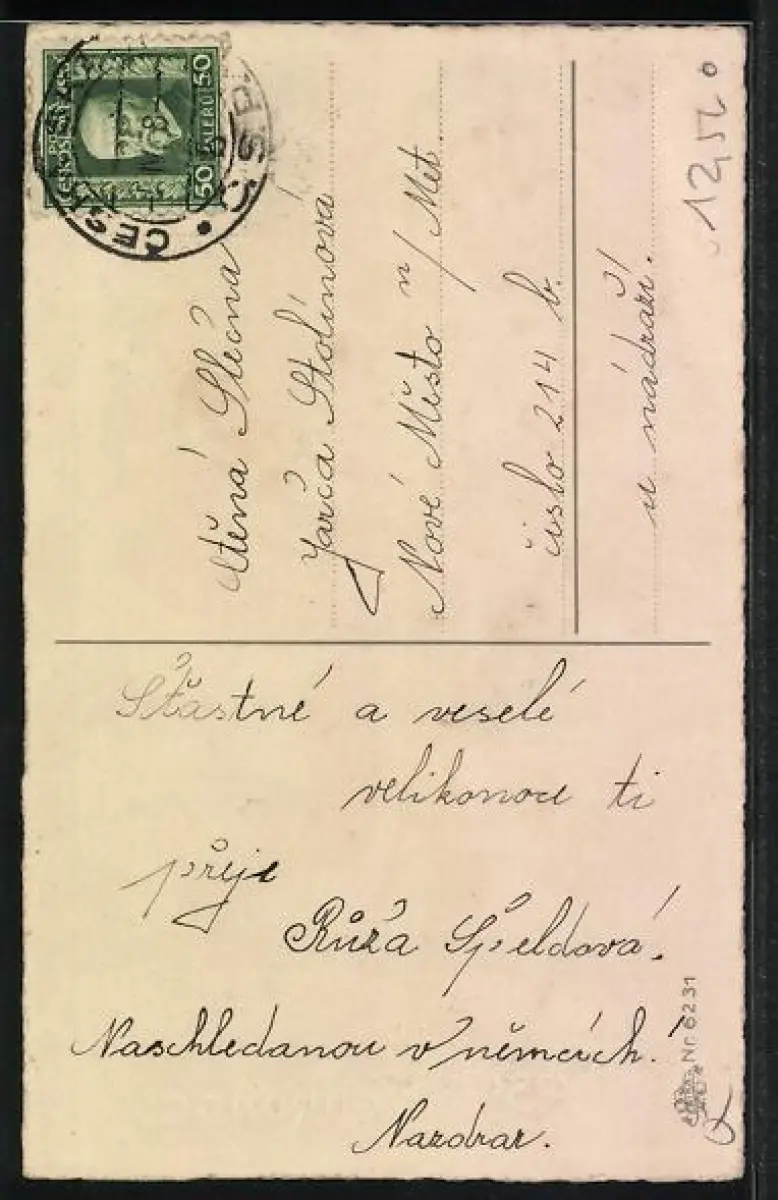 50
50
HALÉŘŮ
ČESKÁ
ČSP.
12,50
Ctěná Slečna
Jarča Stolínová
Nové Město n/Met.
číslo 214 b.
u nádraží.
Šťastné a veselé
velikonoce ti
přeje
Růža Špeldová.
Naschledanou v němcích!
Nazdrar.
Nr. 6231